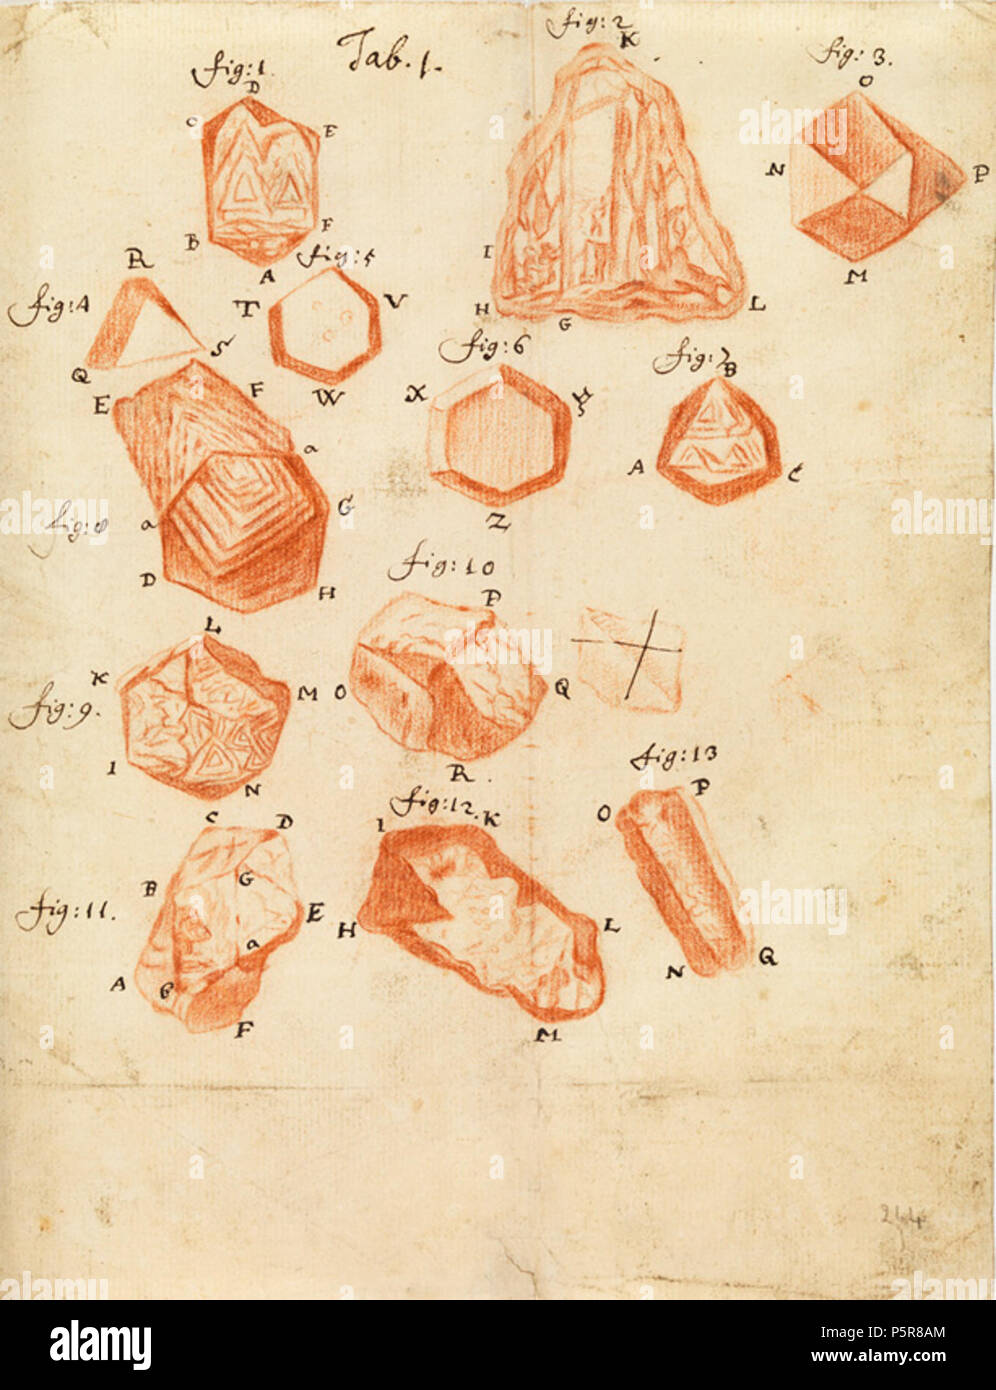 Tab. 1.
fig: 1.
D
C
E
B
F
A
fig: 2
K
I
H
G
L
fig: 3.
O
N
P
M
fig: 4
R
Q
S
fig: 5
T
V
W
fig: 6
X
Z
fig: 7
B
A
C
fig: 8
E
F
a
G
a
D
H
fig: 9.
L
K
M
I
N
fig: 10
P
O
Q
R.
fig: 11.
C
D
B
G
E
a
A
F
fig: 12.
I
K
H
L
M
fig: 13
O
P
N
Q
244
alamy
Image ID: P5R8AM
www.alamy.com